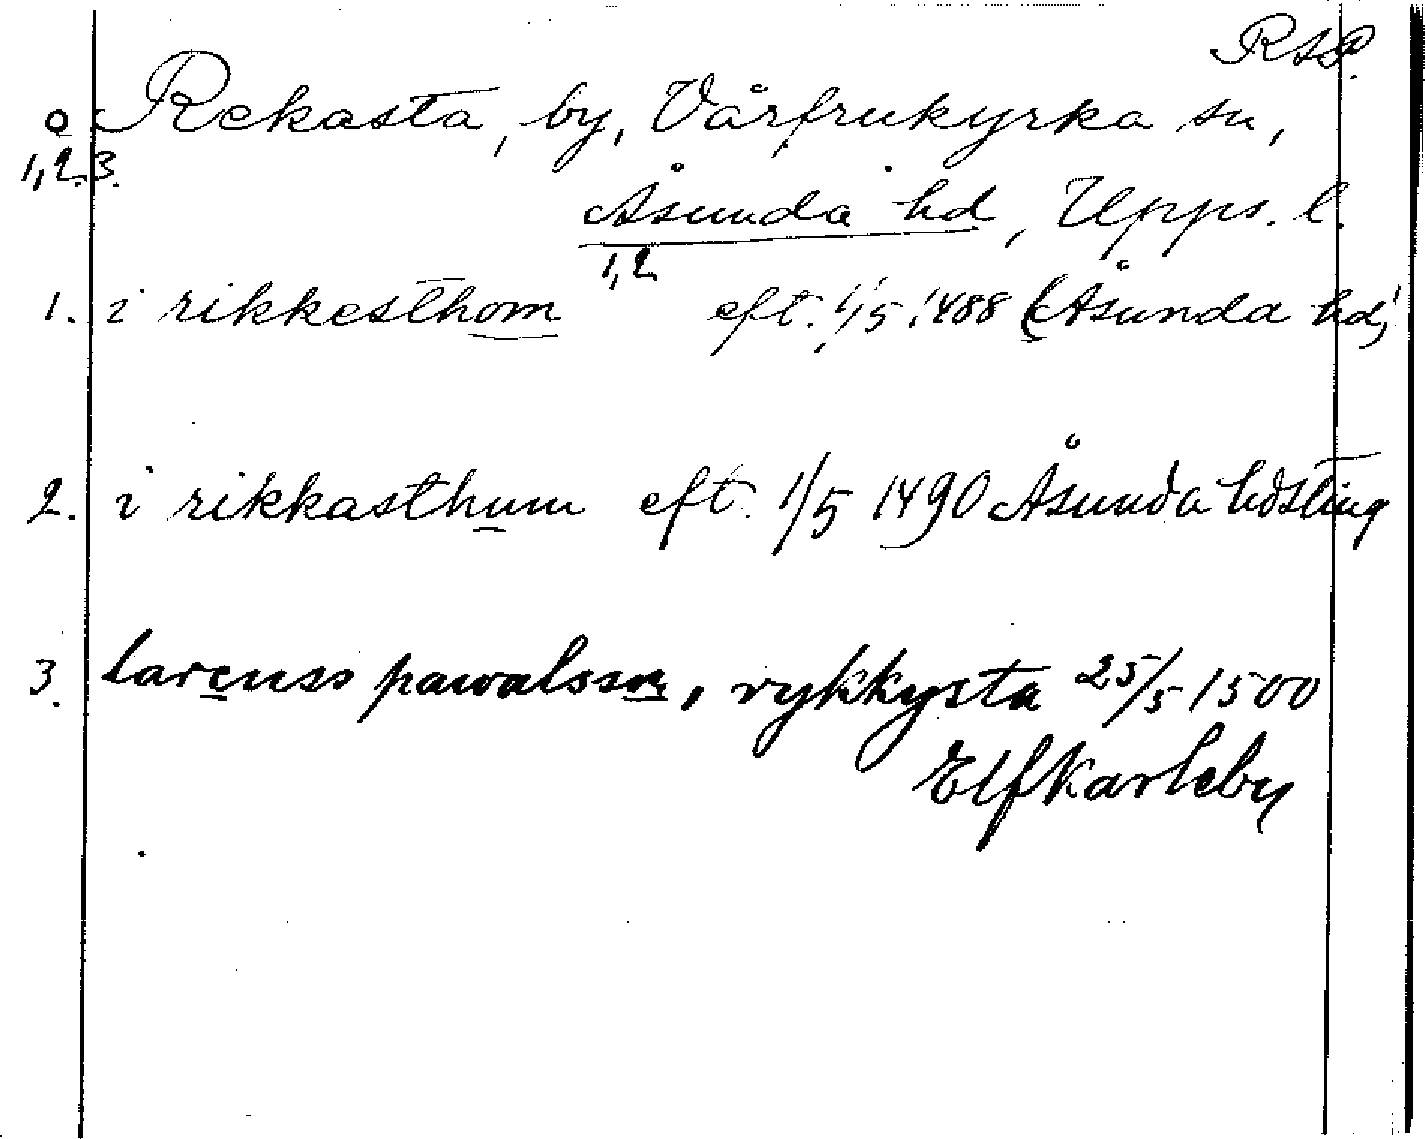 RAP.
o Rekasta, by, Vårfrukyrka sn,
1,2.3.
Åsunda hd, Upps. l.
1,2
1. i rikkesthom eft. 1/5 1488 (Åsunda hd)
2. i rikkasthum eft. 1/5 1490 Åsunda hdsting
3. larenss pawalsson, rykkysta 25/5 1500
Elfkarleby